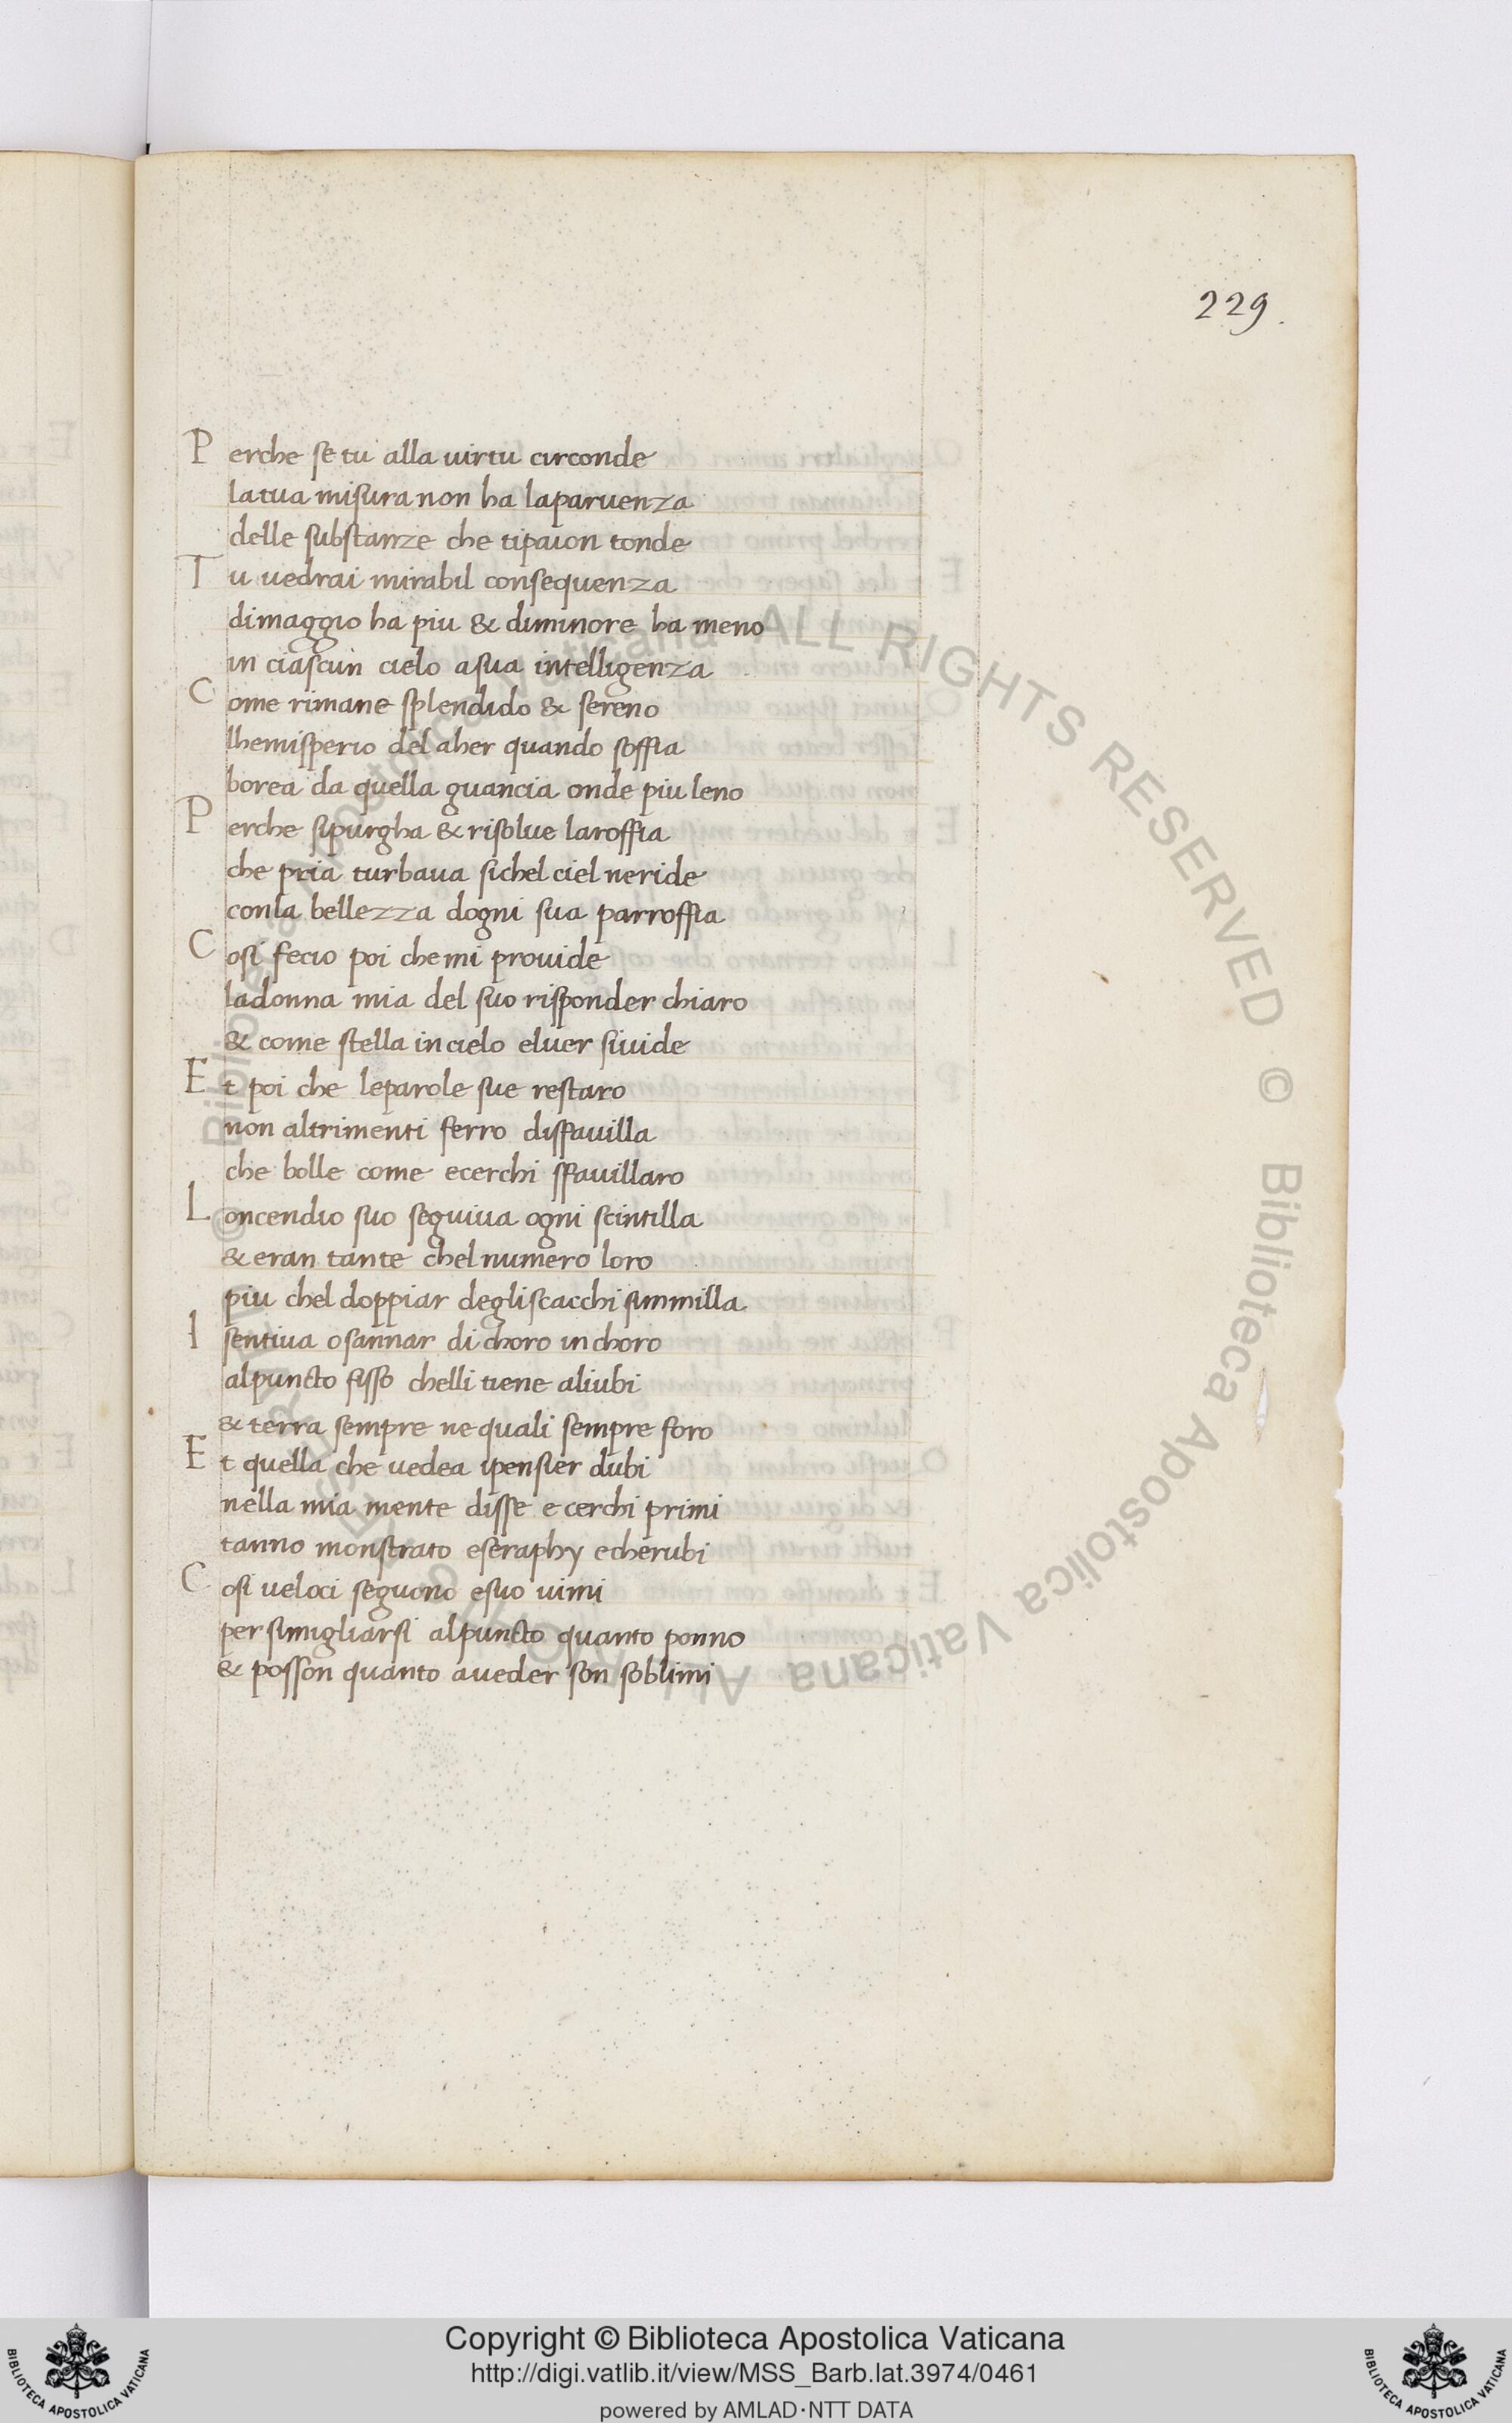 229.
Perche se tu alla uirtu circonde
latua misura non ha laparuenza
delle substanze che tipaion tonde
Tu uedrai mirabil consequenza
dimaggio ha piu & diminore ha meno
in ciascun cielo asua intelligenza
Come rimane splendido & sereno
lhemisperio del aher quando soffia
borea da quella guancia onde piu leno
Perche sipurgha & risolue laroffia
che pria turbaua sichel ciel neride
conla bellezza dogni sua parroffia
Cosi fecio poi chemi prouide
ladonna mia del suo risponder chiaro
& come stella incielo eluer siuide
Et poi che leparole sue restaro
non altrimenti ferro disfauilla
che bolle come ecerchi sfauillaro
Loncendio suo seguiua ogni scintilla
& eran tante chel numero loro
piu chel doppiar degliscacchi simmilla
I sentiua osannar di choro in choro
alpuncto fisso chelli tiene aliubi
& terra sempre ne quali sempre foro
Et quella che uedea ipensier dubi
nella mia mente disse e cerchi primi
tanno monstrato eseraphy echerubi
Cosi ueloci seguono esuo uimi
per simigliarsi alpuncto quanto ponno
& posson quanto aueder son soblimi
Copyright © Biblioteca Apostolica Vaticana
http://digi.vatlib.it/view/MSS_Barb.lat.3974/0461
powered by AMLAD·NTT DATA